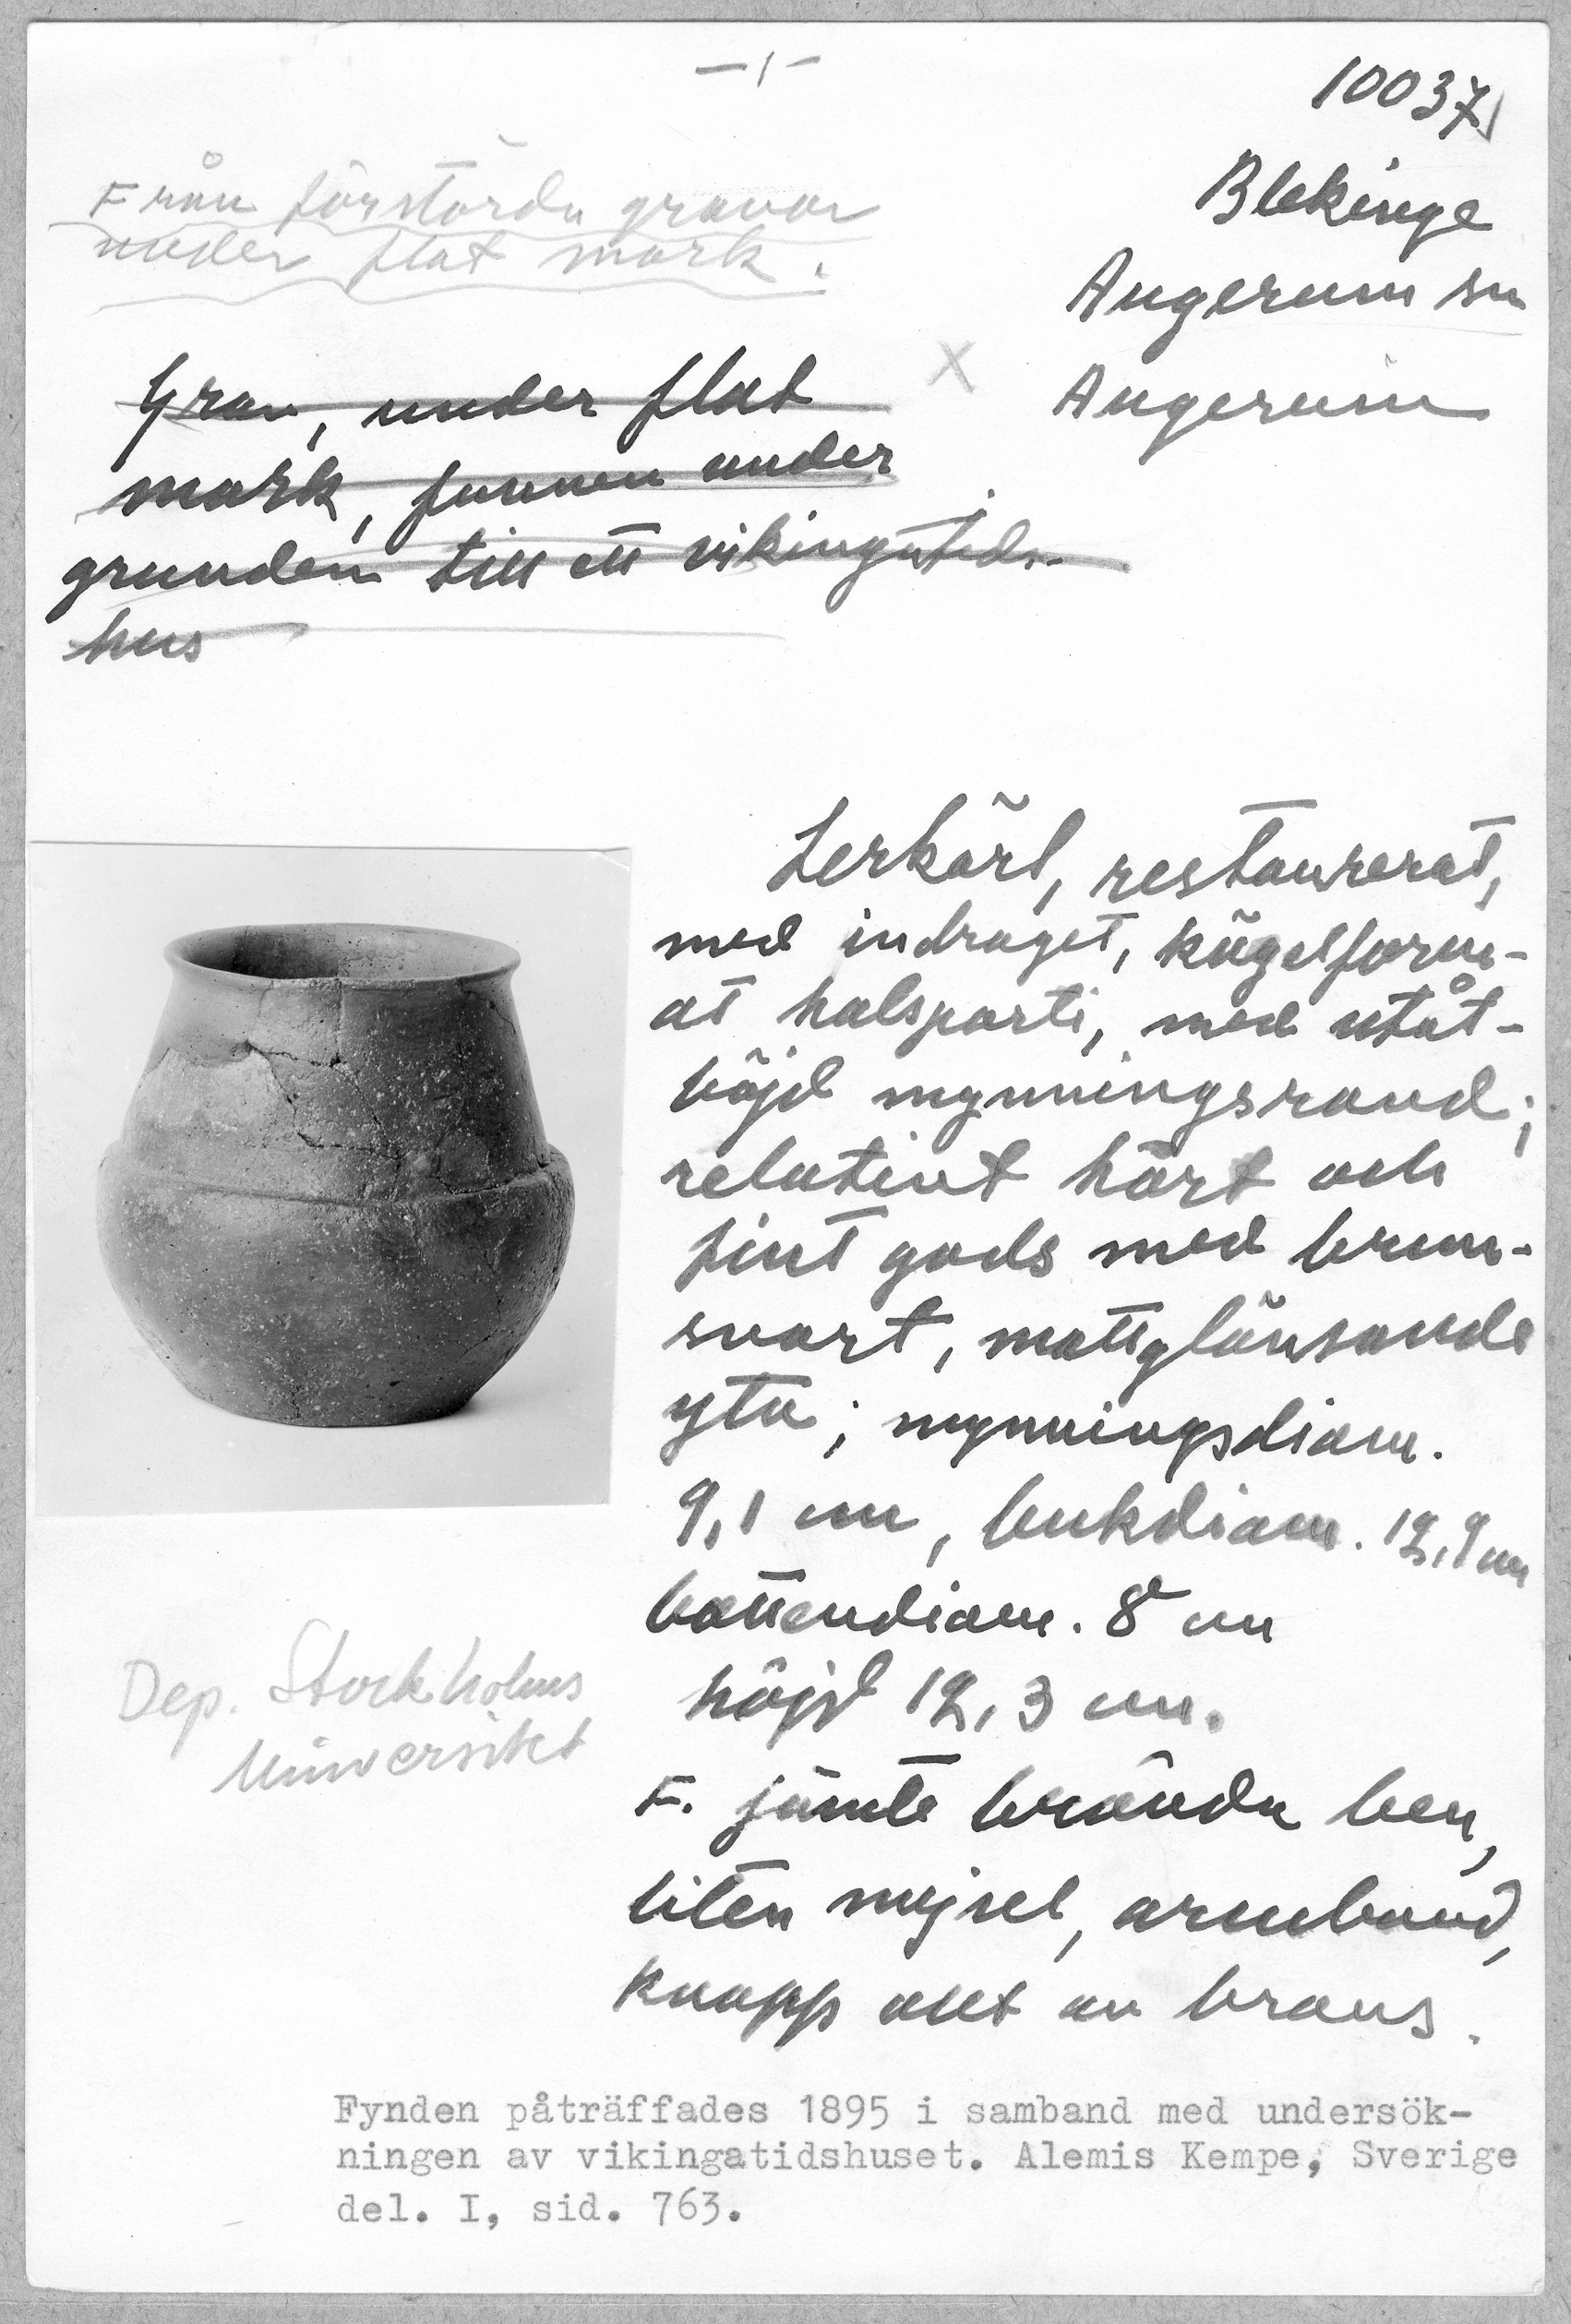 - 1 -
10037
Blekinge
Augerum sn
Augerum
Från förstörda gravar
under flat mark.
X
Grav, under flat
mark, funnen under
grunden till ett vikingatids-
hus
Lerkärl, restaurerat,
med indraget, kägelform-
at halsparti, med utåt-
böjd mynningsrand;
relativt hårt och
fint gods med brun-
svart, mattglänsande
yta; mynningsdiam.
9,1 cm, bukdiam. 12,9 cm
bottendiam. 8 cm
höjd 12,3 cm.
Dep. Stockholms
Universitet
F. jämte brända ben,
liten mejsel, armband,
knapp allt av brons.
Fynden påträffades 1895 i samband med undersök-
ningen av vikingatidshuset. Alemis Kempe, Sverige
del. I, sid. 763.